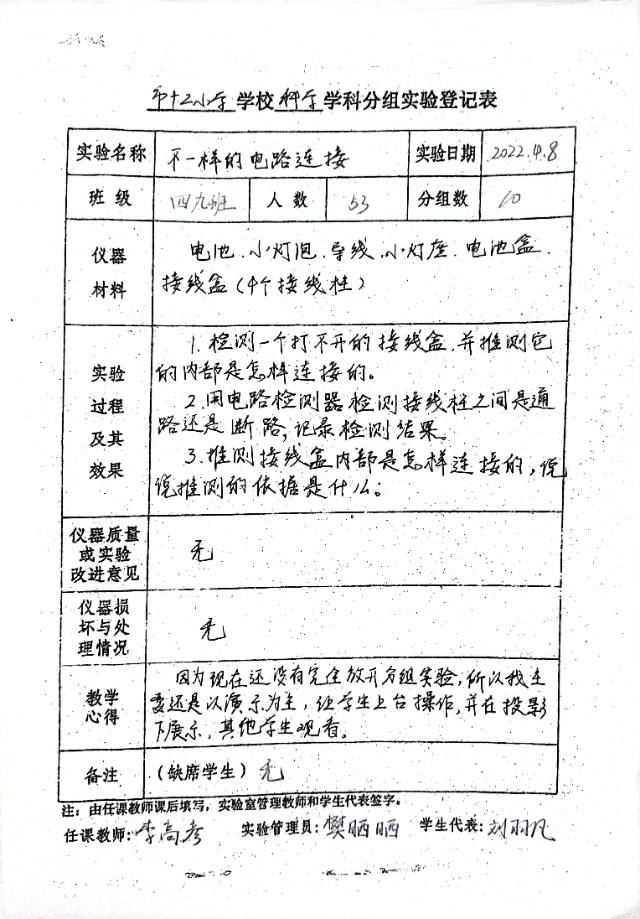 市十二小学学校科学学科分组实验登记表
实验名称 不一样的电路连接 实验日期 2022.4.8
班 级 四九班 人 数 53 分组数 10
仪器
材料
电池、小灯泡、导线、小灯座、电池盒、
接线盒(4个接线柱)
实验
过程
及其
效果
1.检测一个打不开的接线盒,并推测它
的内部是怎样连接的。
2.用电路检测器检测接线柱之间是通
路还是断路,记录检测结果。
3.推测接线盒内部是怎样连接的,说
说推测的依据是什么。
仪器质量
或实验
改进意见
无
仪器损
坏与处
理情况
无
教学
心得
因为现在还没有完全放开分组实验,所以我主
要还是以演示为主,让学生上台操作,并在投影
下展示,其他学生观看。
备注 (缺席学生) 无
注:由任课教师课后填写,实验室管理教师和学生代表签字。
任课教师:李高考 实验管理员:樊晒晒 学生代表:刘羽凡